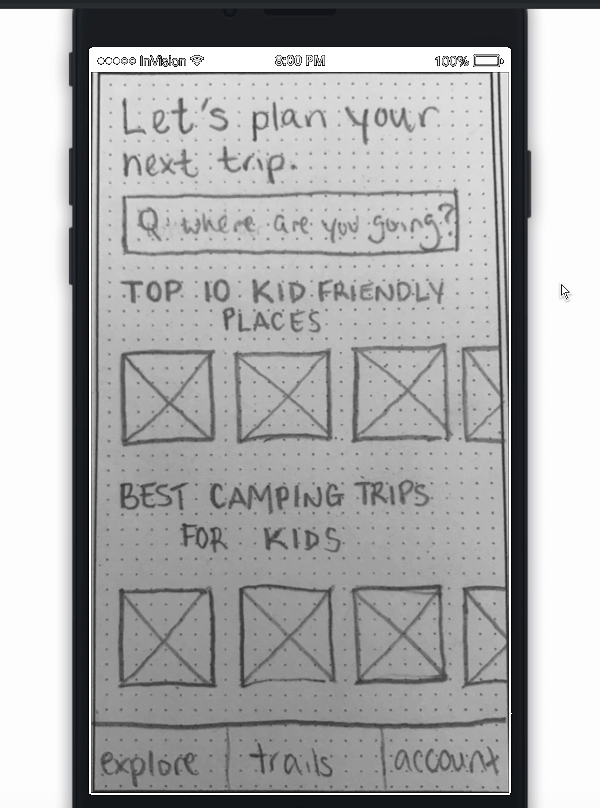 InVision 8:00 PM 100%
Let's plan your
next trip.
where are you going?
TOP 10 KID FRIENDLY
PLACES
BEST CAMPING TRIPS
FOR KIDS
explore trails account